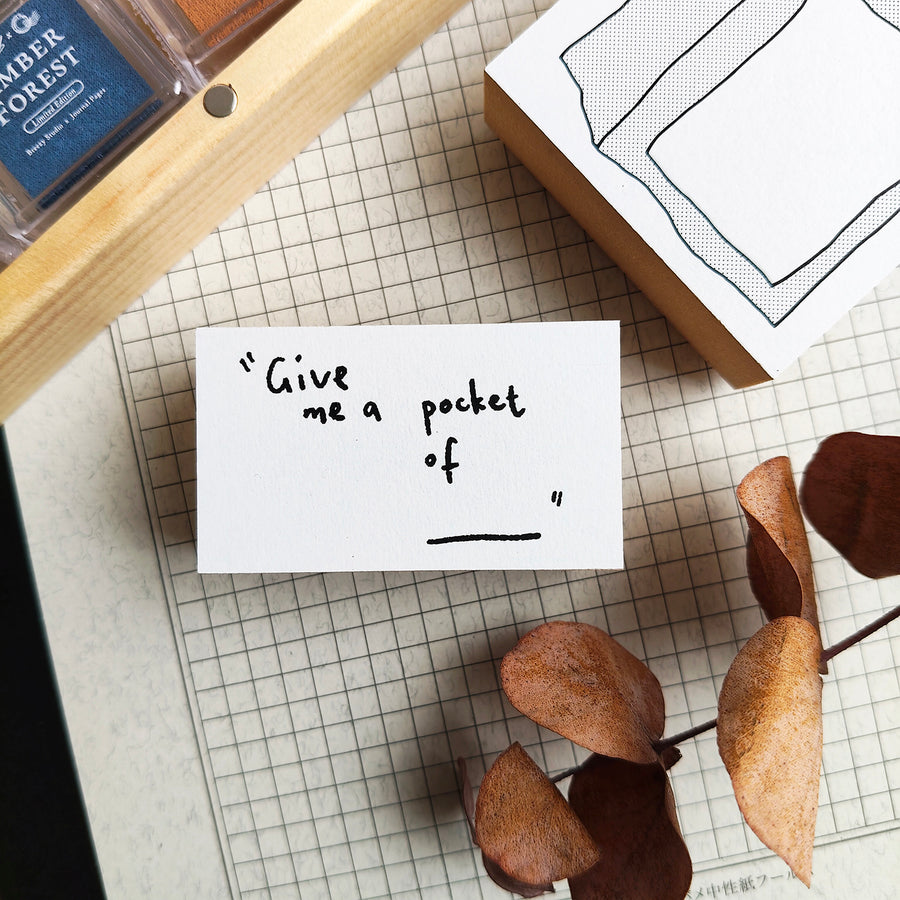 MBER
FOREST
Limited Edition
Breezy Studio x Journal Pages
"Give
me a pocket
of
______"
メ中性紙フール